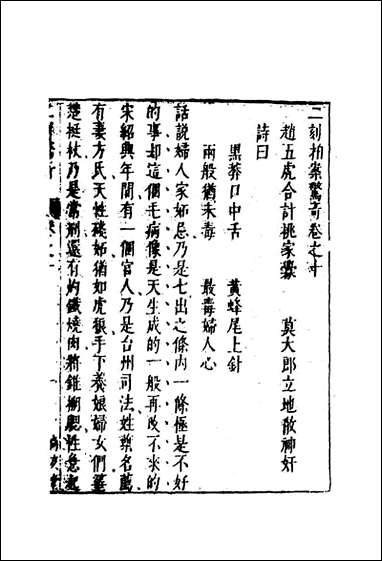 二刻拍案驚奇卷之十
趙五虎合計挑家釁　莫大郎立地散神奸
詩曰
黑蟒口中舌　黃蜂尾上針
兩般猶未毒　最毒婦人心
話說婦人家妬忌乃是七出之條內一條極是不好
的事却這個毛病像是天生成的一般再改不來的
宋紹興年間有一個官人乃是台州司法姓葉名薦
有妻方氏天性殘妬猶如虎狼手下養娘婦女們箠
楚挺杖乃是常刑還有灼鐵燒肉將錐搠腮性急起